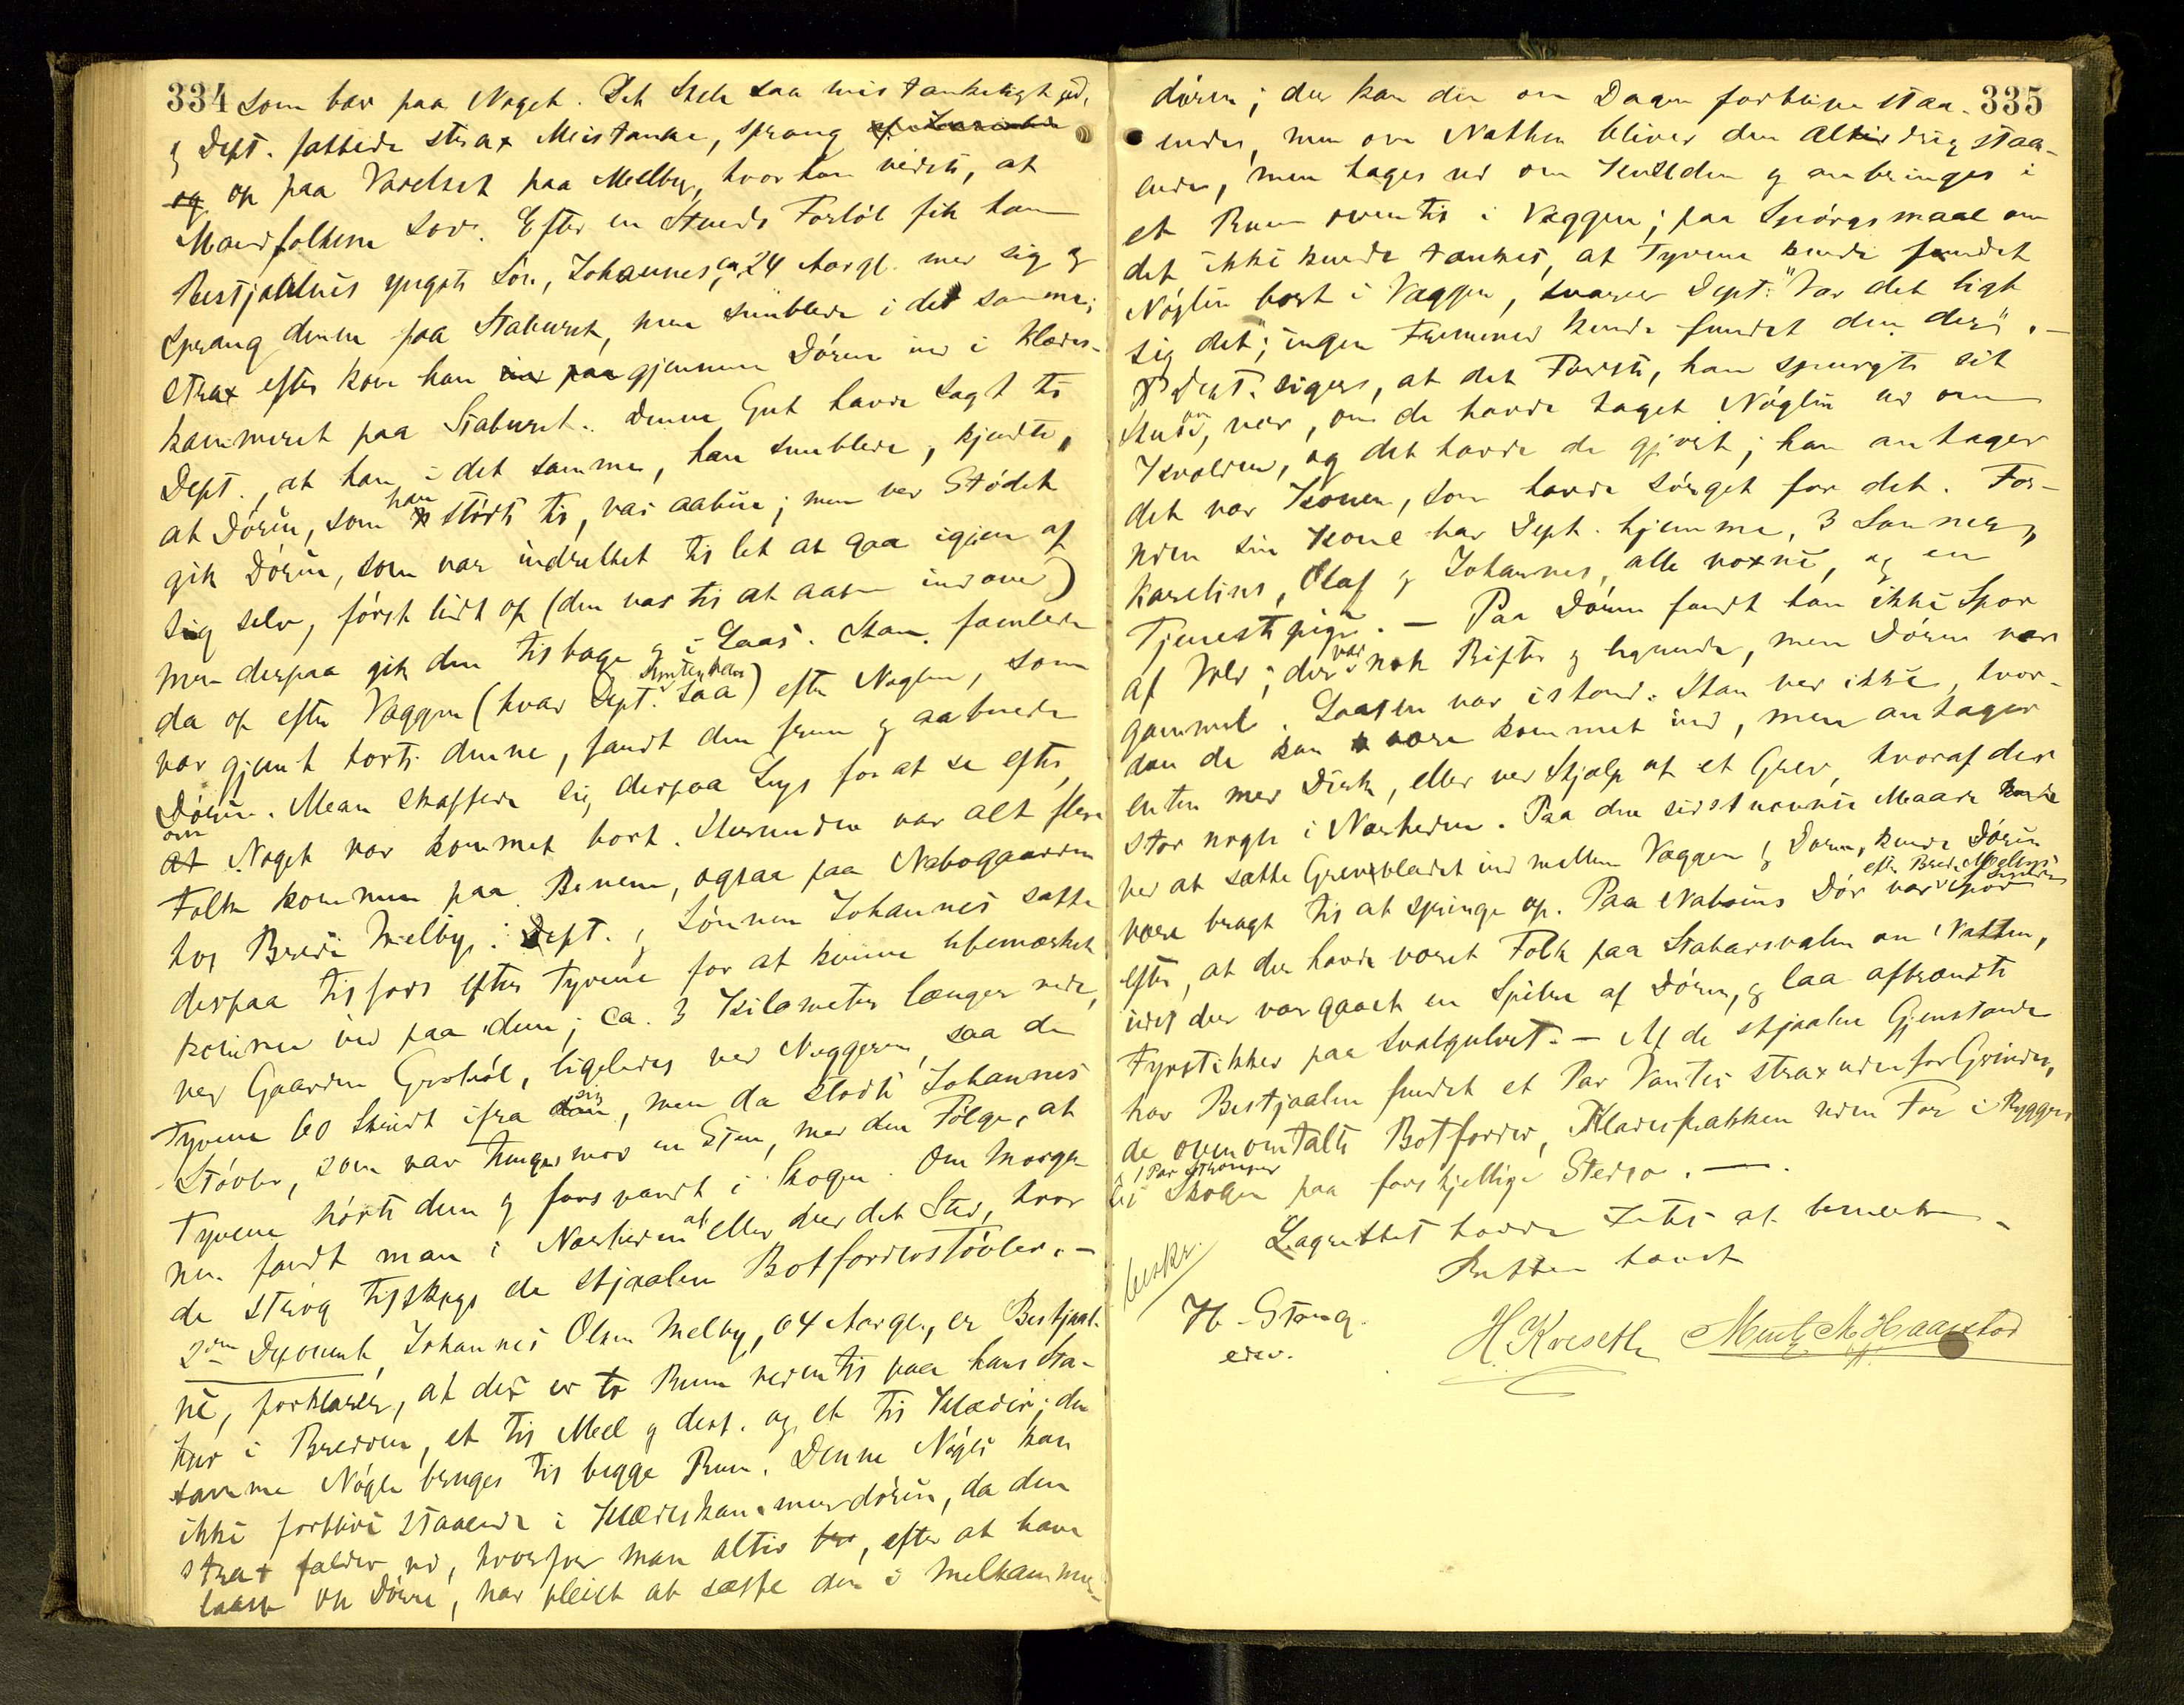 334
som bar paa Noget. Det Hele saa mistænkeligt ud,
og Dept. fattede strax Mistanke, sprang
og op paa Værelset paa Melby, hvor han vidste, at
Mandfolkene sov. Efter en Stunds Forløb fik han
Bestjaalnes yngste Søn, Johannes, ca. 24 Aar gl. med sig og
sprang denne paa Staburet, men snublede i det samme;
strax efter kom han ind paa gjennem Døren ind i Klædes-
kammeret paa Staburet. Denne Gut havde sagt til
Dept., at han i det samme, han snublede, kjendte,
at Døren, som han stødte til, var aaben; men ved Stødet
gik Døren, som var indrettet til let at gaa igjen af
sig selv, først lidt op (den var til at aabne indover)
men derpaa gik den tilbage og i Laas. Han famlede
da op efter Væggen (hvad Dept. saa) efter Nøglen, som
var gjemt borte denne, fandt den frem og aabnede
Døren. Man skaffede sig derpaa Lys for at se efter,
om at Noget var kommet bort. Herunder var alt flere
Folk kommen paa Benene, ogsaa paa Nabogaarden
hos Brede Melby. Dept. og Sønnen Johannes satte
derpaa tilfods efter Tyvene for at komme ubemærket
kommen ind paa dem; ca. 3 Kilometer længer nede,
ved Gaarden Grobøl, ligeledes ved Nuggeren, saa de
Tyvene 60 Skridt ifra sig, men da stødte Johannes
Støvler, som var tunge, mod en Sten, med den Følge, at
Tyvene hørte dem og forsvandt i Skogen. Om Morge-
nen fandt man i Nærheden af eller der det Sted, hvor
de strøg tilskogs de stjaalne Botforderstøvler. -
2den Deponent, Johannes Olsen Melby, 64 Aar gl., er Bestjaal-
ne, forklarer, at der er to Rum nedentil paa hans Sta-
bur i Bredden, et til Mel og desl. og et til Klæder; den
samme Nøgle bruges til begge Rum. Denne Nøgle kan
ikke forblive staaende i Klædeskammerdøren, da den
strax falder ud, hvorfor man altid, efter at have
laast op Døren, har pleiet at sætte den i Melkammer-
335
døren; der kan den om Dagen forblive staa-
ende, men om Natten bliver den aldrig staa-
ende, men tages ud om Kvelden og anbringes i
et Rum oventil i Væggen; paa Spørgsmaal om
det ikke kunde tænkes, at Tyvene kunde fundet
Nøglen bort i Væggen, svarer Dept: "Var det ligt
sig det; ingen Fremmed kunde fundet den der". -
Dept. siger, at det Første, han spurgte sit
Hus om, var, om de havde taget Nøglen ud om
Kvelden, og det havde de gjort; han antager
det var Konen, som havde sørget for det. For-
uden sin Kone har Dept. hjemme, 3 Sønner,
Karelius, Olaf og Johannes, alle voxne, og en
Tjenestepige. - Paa Døren fandt han ikke Spor
af Vold; der var nok Rifter og lignende, men Døren var
gammel. Laasen var istand. Han ved ikke, hvor-
dan de kan være kommet ind, men antager
enten med Dirk, eller ved Hjælp af et Grev, hvoraf der
stod nogle i Nærheden. Paa den sidstnævnte Maade
ved at sætte Grevbladet ind mellem Væggen og Døren, kunde Døren
være bragt til at springe op. Paa Naboens Dør var efter Brede Melbys Spor
efter, at der havde været Folk paa Stabursvalen om Natten,
idet der var gaaet en Splint af Døren, og laa afbrændte
Fyrstikker paa Svalgulvet. - Af de stjaalne Gjenstande
har Bestjaalne fundet et Par Vanter strax udenfor Grinden,
de ovenomtalte Botforder, Klædesfrakken uden For i Ryggen
1 Par Strømper
i Skogen paa forskjellige Steder. -
Lagrettet havde Intet at bemærke
Retten hævet
beskr.
H. Stang
edsv.
H. Kveseth Mentz M. Haarstad